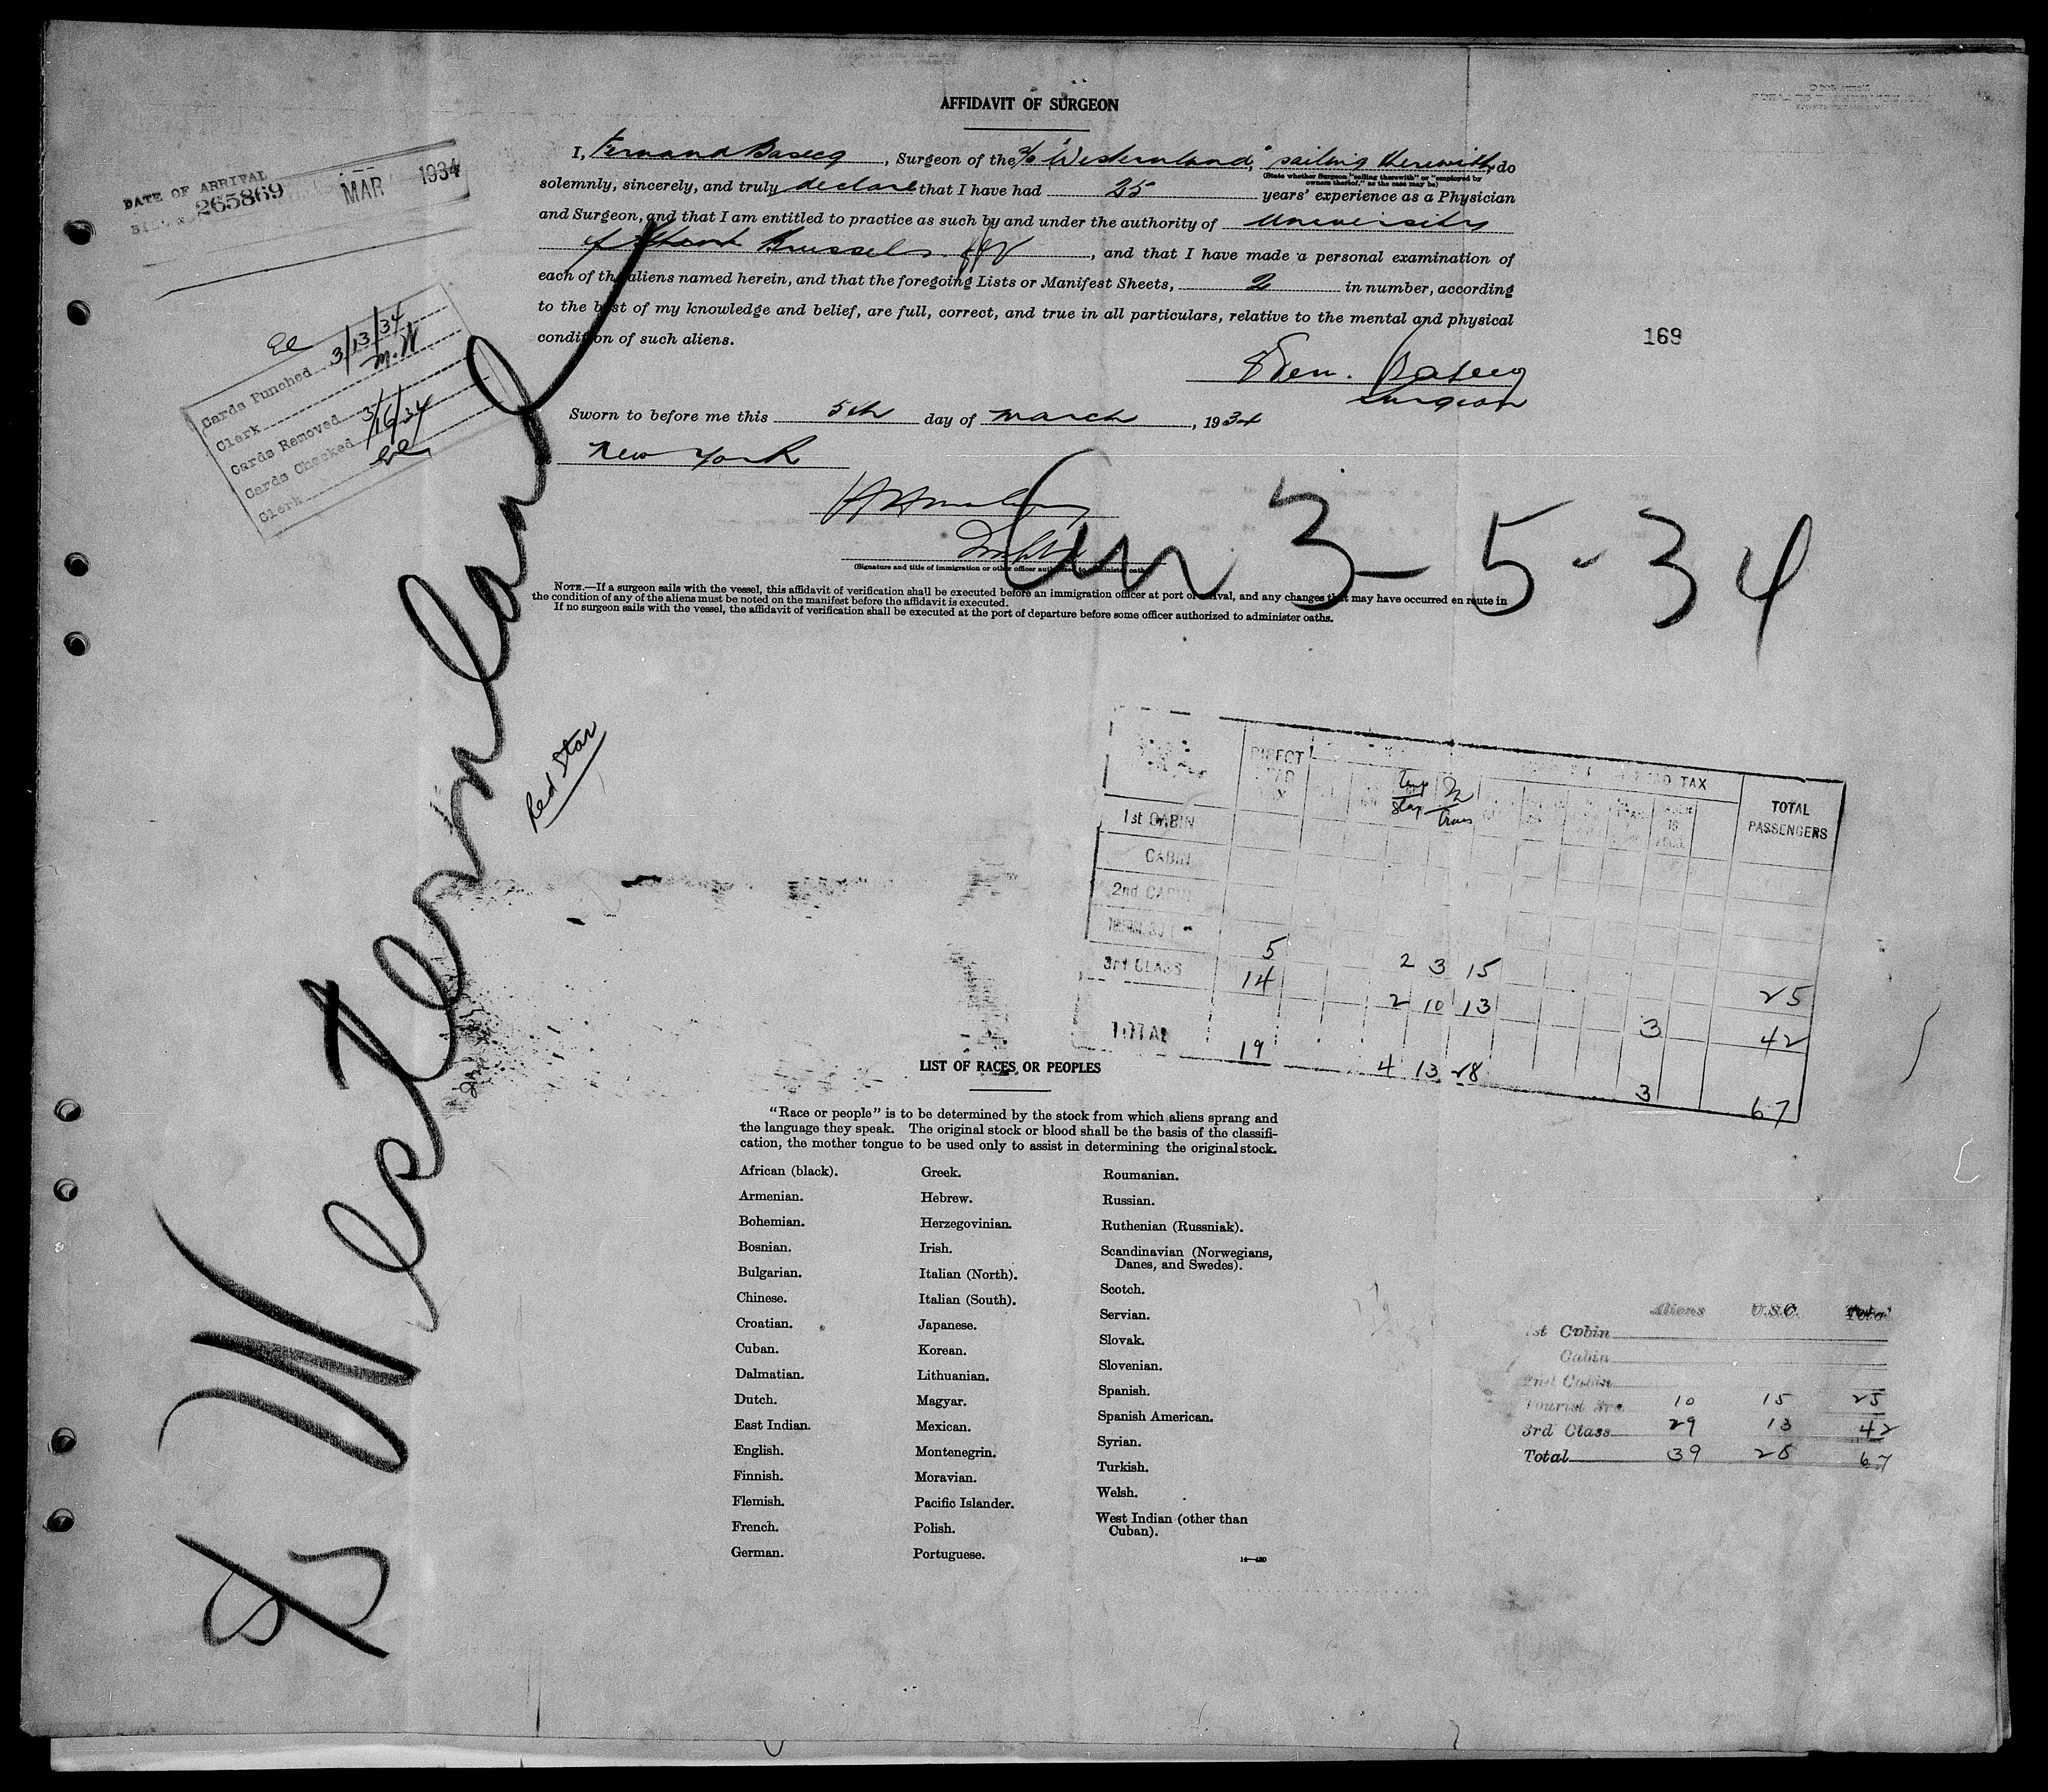 AFFIDAVIT OF SURGEON
I, Fernand Basecq, Surgeon of the S/S "Westernland," sailing therewith, do
(State whether Surgeon "sailing therewith" or "employed by
owners thereof," as the case may be)
solemnly, sincerely, and truly declare that I have had 25 years' experience as a Physician
and Surgeon, and that I am entitled to practice as such by and under the authority of University
of Brussels, and that I have made a personal examination of
each of the aliens named herein, and that the foregoing Lists or Manifest Sheets, 2 in number, according
to the best of my knowledge and belief, are full, correct, and true in all particulars, relative to the mental and physical
condition of such aliens.
Fern. Basecq
Surgeon
Sworn to before me this 5th day of March, 1934
New York
(Signature and title of immigration or other officer authorized to administer oaths)
NOTE.—If a surgeon sails with the vessel, this affidavit of verification shall be executed before an immigration officer at port of arrival, and any changes that may have occurred en route in
the condition of any of the aliens must be noted on the manifest before the affidavit is executed.
If no surgeon sails with the vessel, the affidavit of verification shall be executed at the port of departure before some officer authorized to administer oaths.
169
DATE OF ARRIVAL
MAR 1934
265869
Cards Punched 3/13/34
Clerk M.W
Cards Removed
Cards Checked 3/16/34
Clerk
SS Westernland
Red Star
3-5-34
DIRECT
TAX
TOTAL
PASSENGERS
1st CABIN
CABIN
2nd CABIN
5 2 3 15 25
3rd CLASS 14 2 10 13 3 42
TOTAL 19 4 13 28 3 67
LIST OF RACES OR PEOPLES
"Race or people" is to be determined by the stock from which aliens sprang and
the language they speak. The original stock or blood shall be the basis of the classifi-
cation, the mother tongue to be used only to assist in determining the original stock.
African (black).
Armenian.
Bohemian.
Bosnian.
Bulgarian.
Chinese.
Croatian.
Cuban.
Dalmatian.
Dutch.
East Indian.
English.
Finnish.
Flemish.
French.
German.
Greek.
Hebrew.
Herzegovinian.
Irish.
Italian (North).
Italian (South).
Japanese.
Korean.
Lithuanian.
Magyar.
Mexican.
Montenegrin.
Moravian.
Pacific Islander.
Polish.
Portuguese.
Roumanian.
Russian.
Ruthenian (Russniak).
Scandinavian (Norwegians,
Danes, and Swedes).
Scotch.
Servian.
Slovak.
Slovenian.
Spanish.
Spanish American.
Syrian.
Turkish.
Welsh.
West Indian (other than
Cuban).
14—420
Aliens U.S.C. Total
1st Cabin
Cabin
2nd Cabin
Tourist 3rd 10 15 25
3rd Class 29 13 42
Total 39 28 67